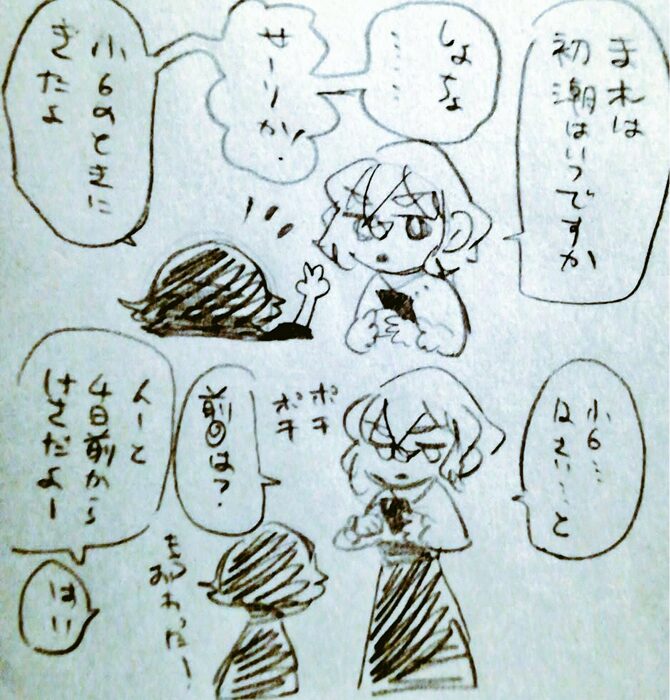 まれは
初潮はいつですか
しょちょ
……
せーりか!
小6のときに
きたよ
小6…
ポチ
ポチ
前回は?
んーと
4日前から
けさだよー
はい
もう
おわったー